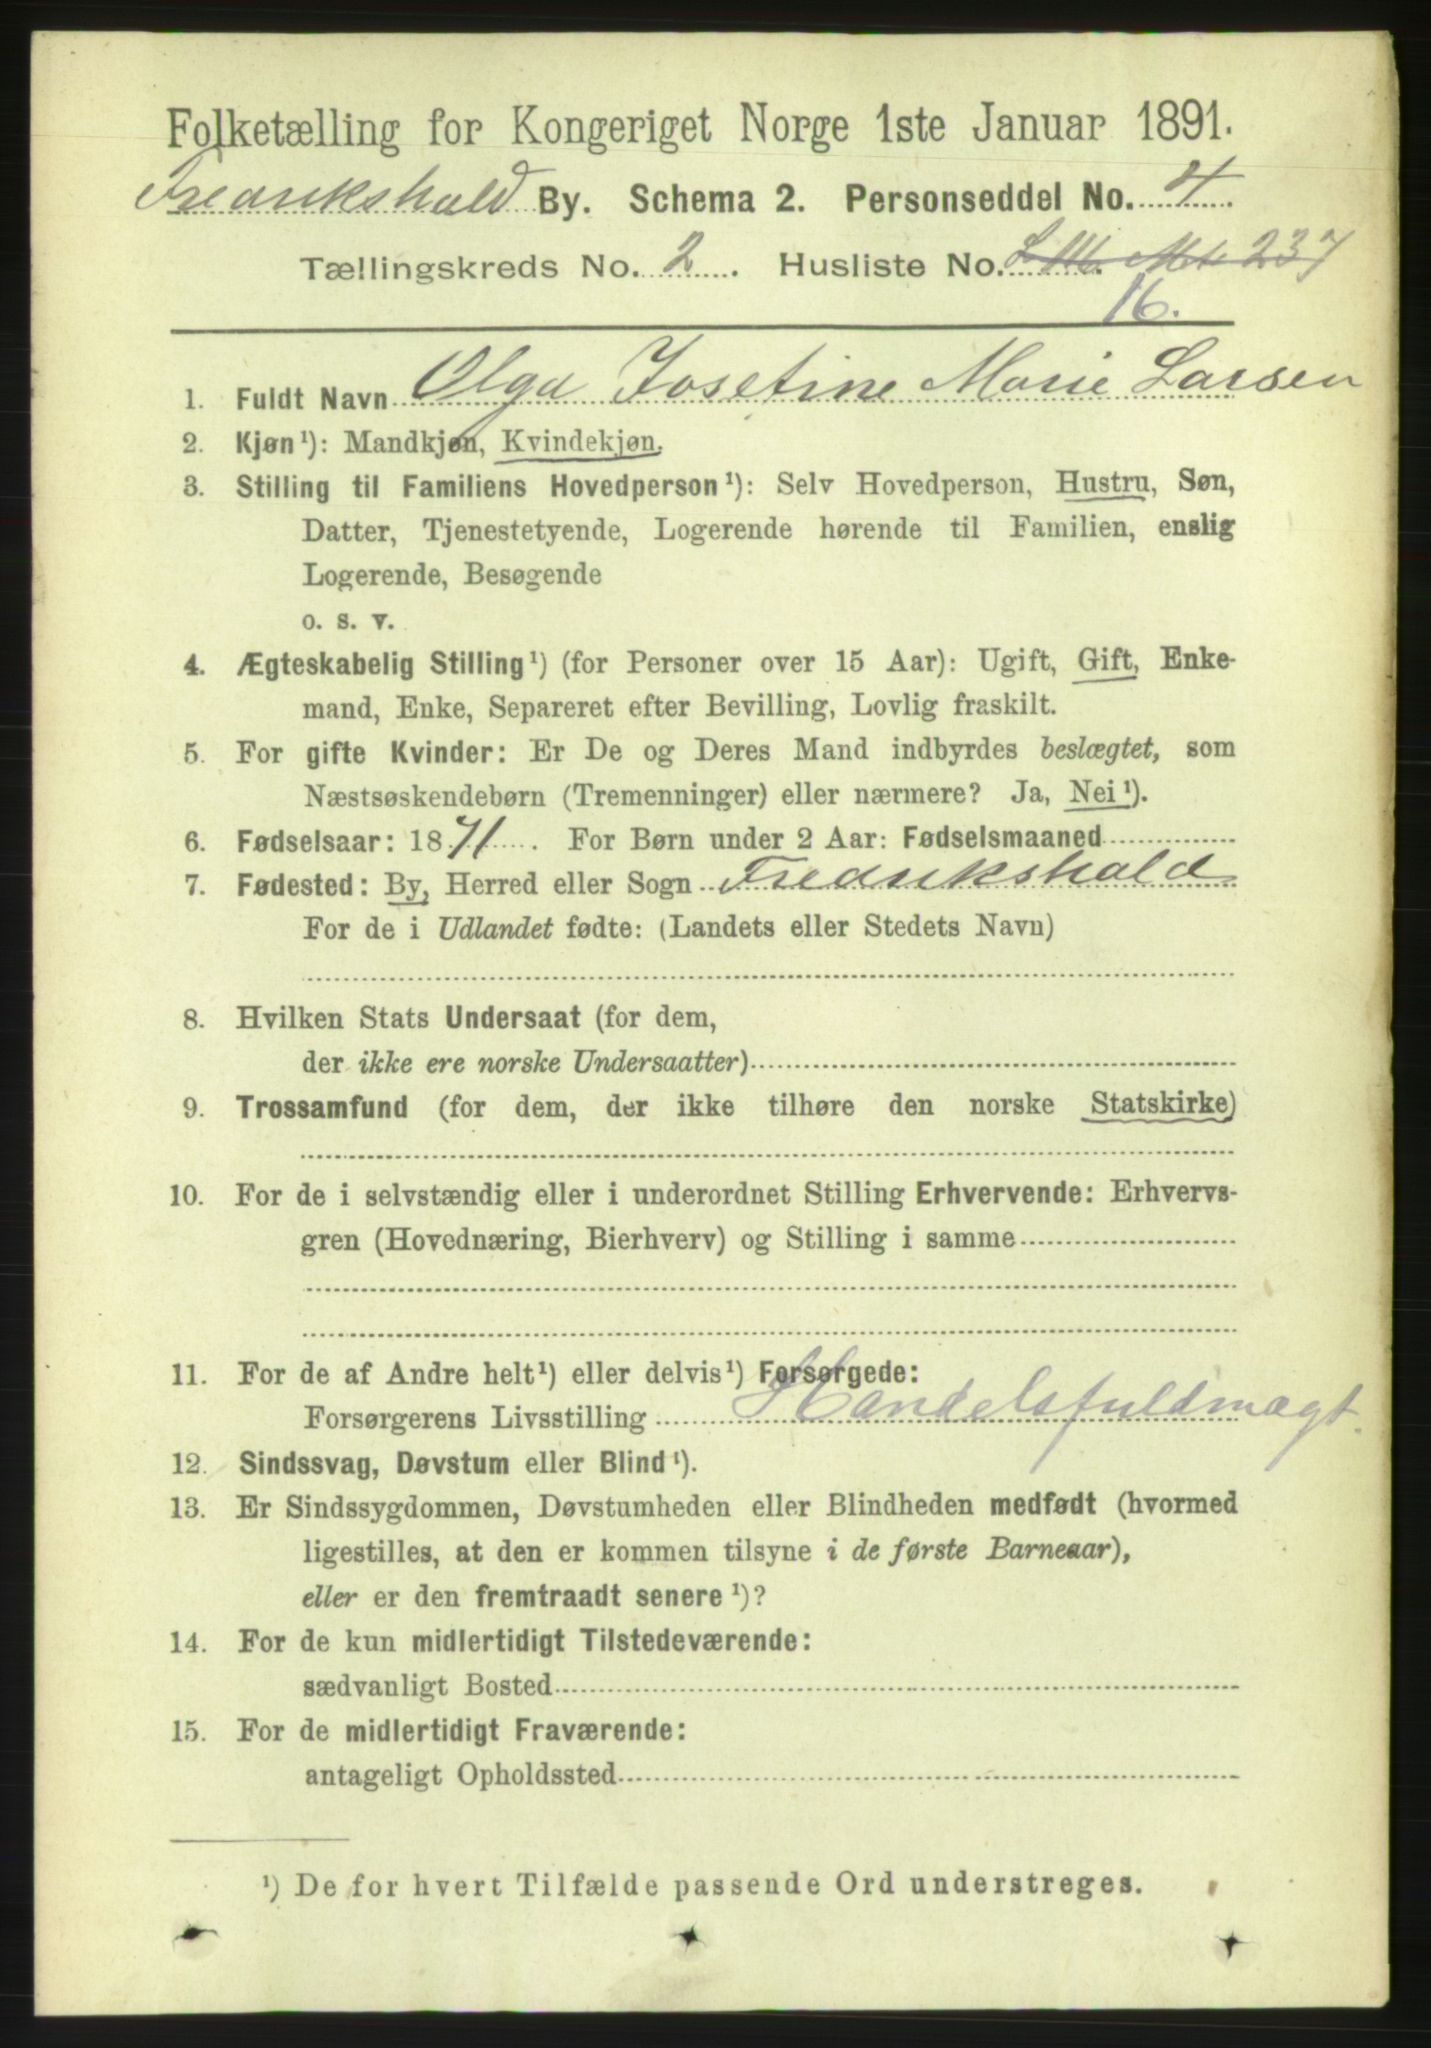 Folketælling for Kongeriget Norge 1ste Januar 1891.
Fredrikshald By. Schema 2. Personseddel No. 4
Tællingskreds No. 2. Husliste No. 237
16.
1. Fuldt Navn Olga Josefine Marie Larsen
2. Kjøn¹): Mandkjøn, Kvindekjøn.
3. Stilling til Familiens Hovedperson¹): Selv Hovedperson, Hustru, Søn,
Datter, Tjenestetyende, Logerende hørende til Familien, enslig
Logerende, Besøgende
o. s. v.
4. Ægteskabelig Stilling¹) (for Personer over 15 Aar): Ugift, Gift, Enke-
mand, Enke, Separeret efter Bevilling, Lovlig fraskilt.
5. For gifte Kvinder: Er De og Deres Mand indbyrdes beslægtet, som
Næstsøskendebørn (Tremenninger) eller nærmere? Ja, Nei¹).
6. Fødselsaar: 1871. For Børn under 2 Aar: Fødselsmaaned
7. Fødested: By, Herred eller Sogn Fredrikshald
For de i Udlandet fødte: (Landets eller Stedets Navn)
8. Hvilken Stats Undersaat (for dem,
der ikke ere norske Undersaatter)
9. Trossamfund (for dem, der ikke tilhøre den norske Statskirke)
10. For de i selvstændig eller i underordnet Stilling Erhvervende: Erhvervs-
gren (Hovednæring, Bierhverv) og Stilling i samme
11. For de af Andre helt¹) eller delvis¹) Forsørgede:
Forsørgerens Livsstilling Handelsfuldmægt.
12. Sindssvag, Døvstum eller Blind¹).
13. Er Sindssygdommen, Døvstumheden eller Blindheden medfødt (hvormed
ligestilles, at den er kommen tilsyne i de første Barneaar),
eller er den fremtraadt senere¹)?
14. For de kun midlertidigt Tilstedeværende:
sædvanligt Bosted
15. For de midlertidigt Fraværende:
antageligt Opholdssted
¹) De for hvert Tilfælde passende Ord understreges.